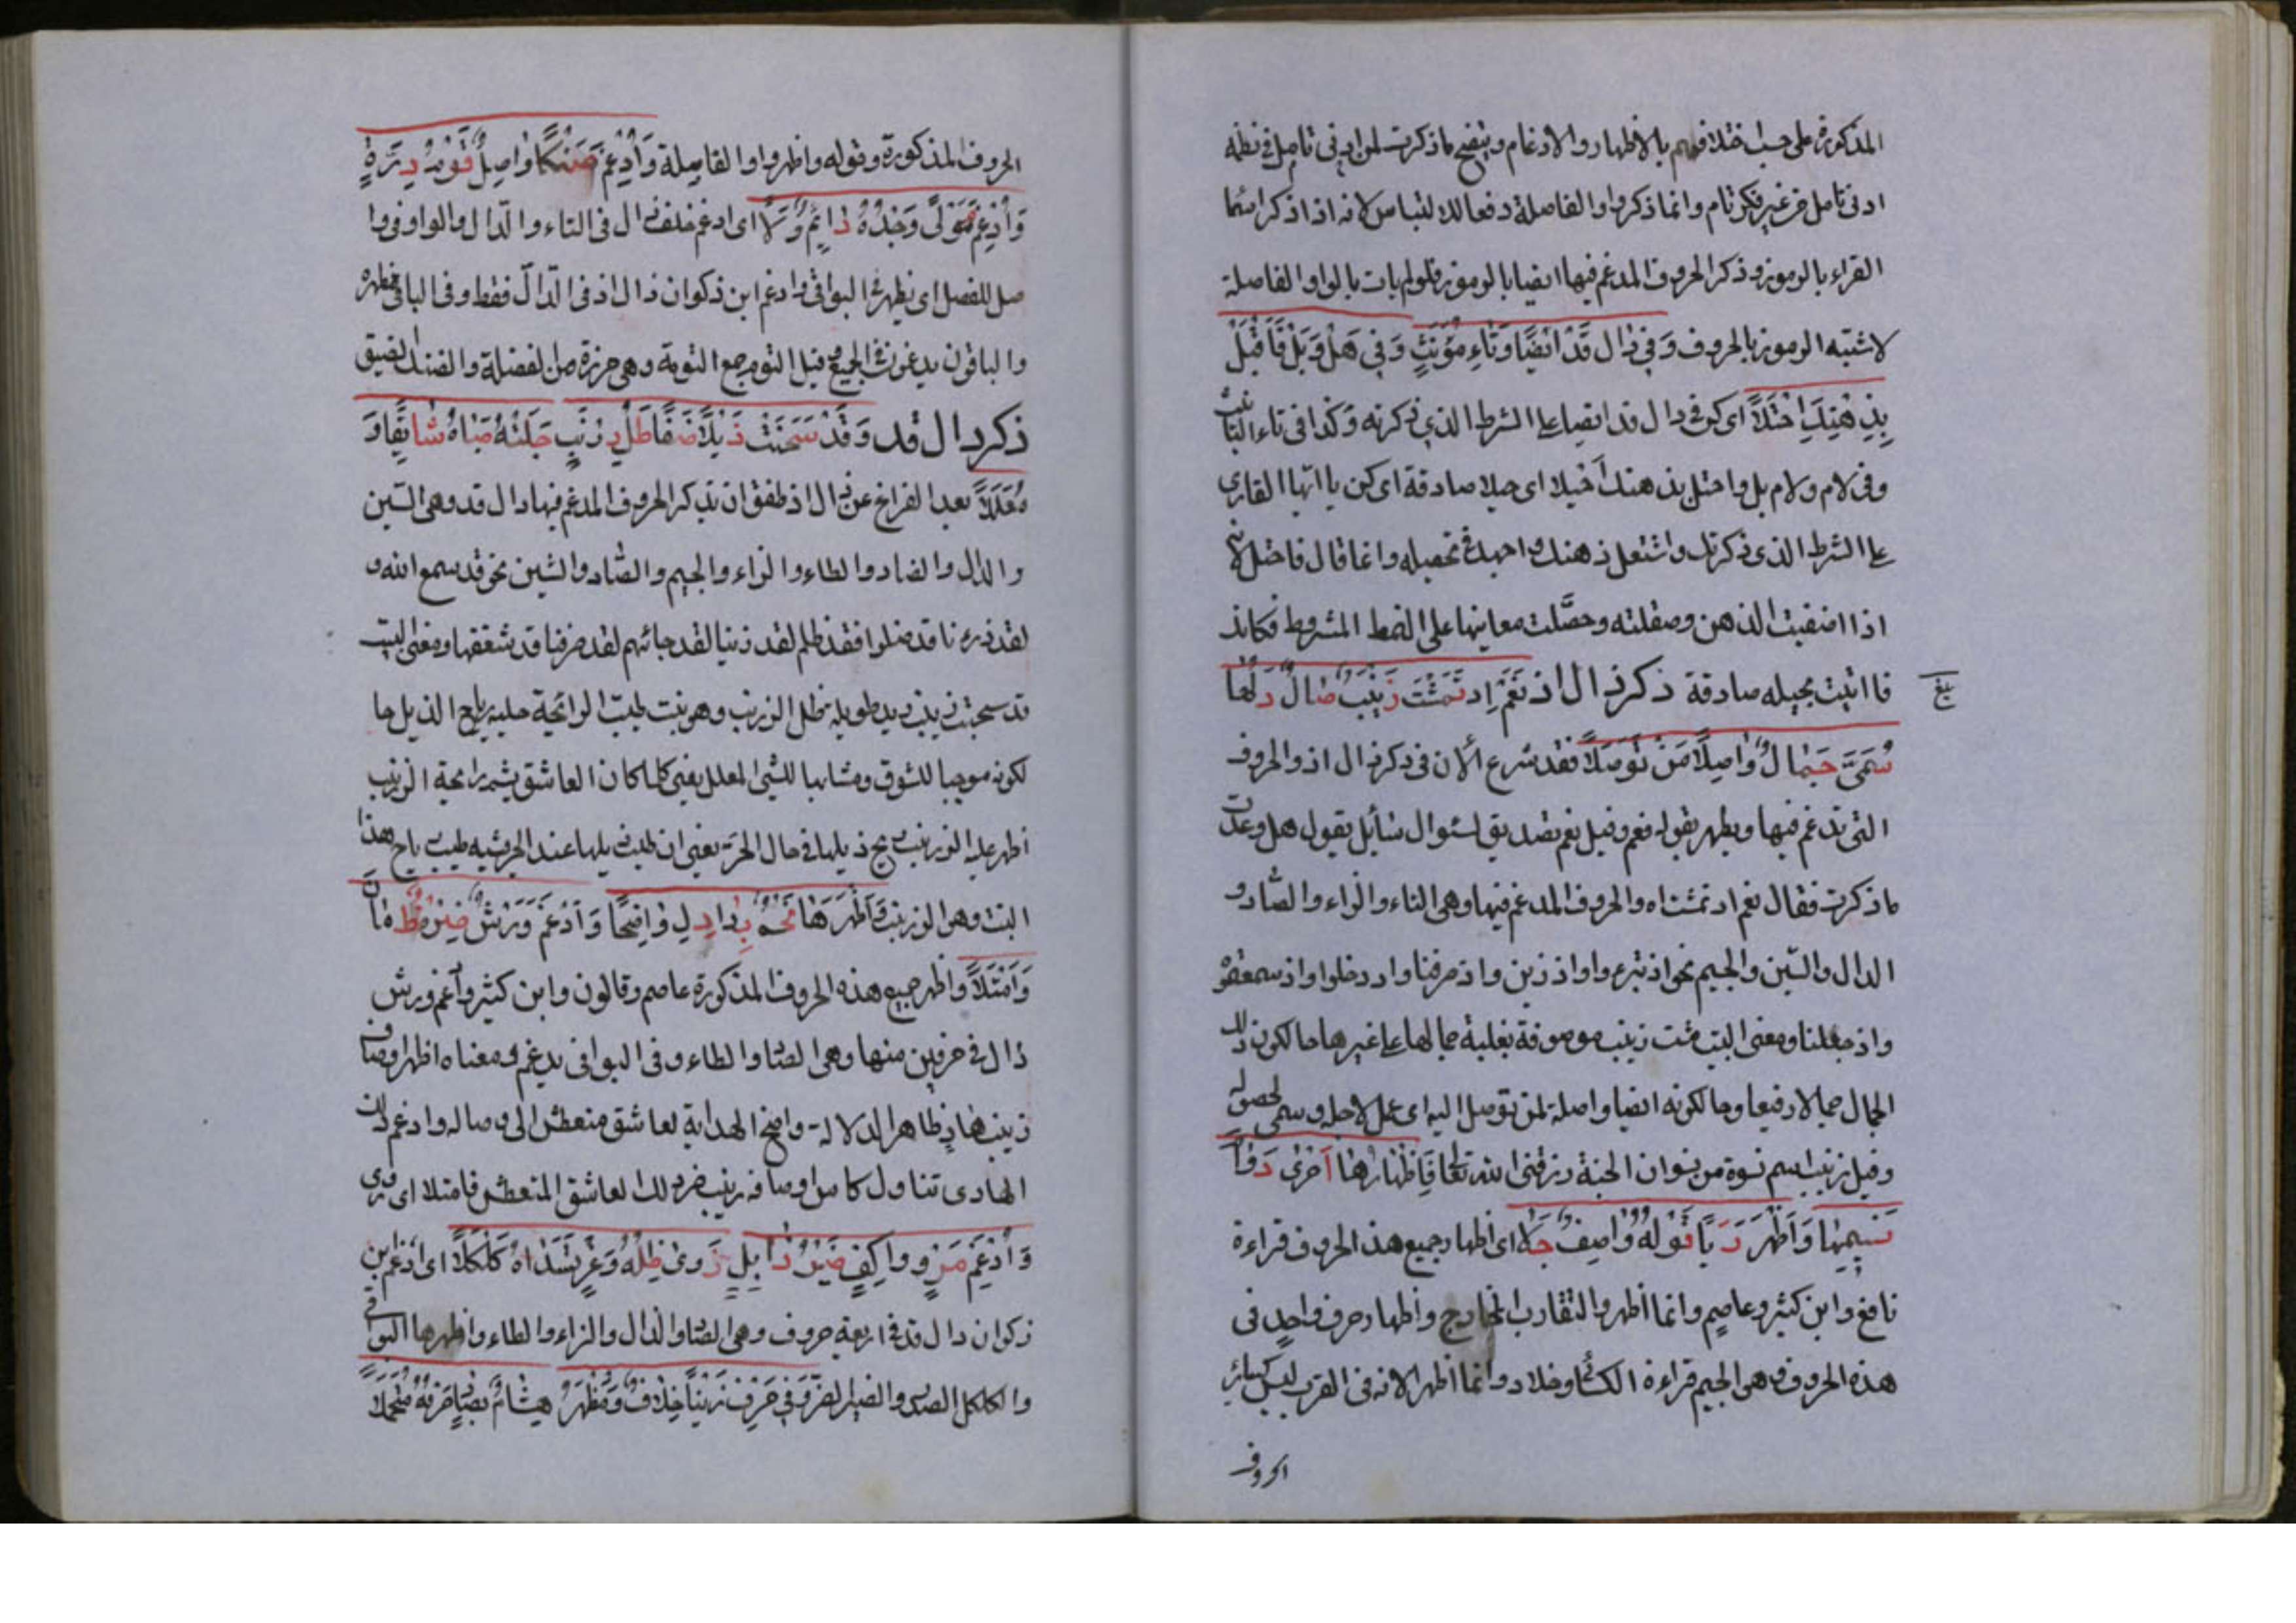 المذكورة على حسب اختلافهم بالاظهار والادغام ويتضح ما ذكرت لمن له فى تامل فى نظمه
ادنى تامل من غير فكر تام وانما ذكر واو الفاصلة دفعا للالتباس لانه اذا ذكر اسما
القراء بالرموز وذكر الحروف المدغم فيها ايضا بالرموز فلو لم يات بالواو الفاصلة
لاشتبه الرموز بالحروف وَفِي دَالِ قَدْ اَيْضًا وَتَاءِ مُؤَنَّثٍ وَفِي هَلْ وَبَلْ فَاحْتَلْ
بِذِهْنِكَ اَحْيَلَا اى كن فى دال قد ايضا على الشرط الذى ذكرته وكذا فى تاء التانيث
وفى لام ولام بل واحتل بذهنك احيلا اى حيلا صادقة اى كن يا ايها القارى
على الشرط الذى ذكرتك واشتعل ذهنك واجهد فى تحصيله وانما قال فاحتل لانك
اذا اضفيت الذهن وصقلته وحصّلت معانيها على النمط المشروط فكانك
فا اتيت بحيله صادقة ذكر ذال اذ نَعَمْ اِذ تَمَشَّتْ زَيْنَبٌ صَالَ دَلُّهَا
بلغ
سَمِىَّ جَمَالٍ وَاصِلًا مَنْ تَوَصَّلَا فقد شرع الان فى ذكر ذال اذ والحروف
التى تدغم فيها ويظهر بقوله نعم وقيل نعم تصديق لسؤال سائل يقول هل وعدت
ما ذكرت فقال نعم اد تمشت اه والحروف المدغم فيها وهى التاء والزاء والصّاد و
الدال والسّين والجيم نحو اذ تبرء واواذ زين واذ صرفنا واد دخلوا واذ سمعتموه
واذ جعلنا ومعنى البيت مشت زينب موصوفة بغلبة جمالها على غيرها حا لكون ذلك
الجمال جمالا رفيعا وحا لكونه ايضا واصلة لمن توصل اليه اى عمل لاجله وسمى لحصوله
وقيل زينب اسم نسوة من نسوان الجنة رزقنى الله تعالى فَاِظْهَارُهَا اَجْرٰى دَوَا
نَسِيمِهَا وَاَظْهَرَ رَيَّا قَوْلِهُ وَاصِفٌ جَلَا اى اظهار جميع هذا الحروف قراءة
نافع وابن كثير وعاصم وانما اظهروا لتقارب المخارج واظهار حرف واحد فى
هذه الحروف وهى الجيم قراءة الكسائى وخلاد وانما اظهر الانه فى القرب ليس كسائر
الحروف
الحروف المذكورة وقوله واظهر واوا لفاصلة وَاَدْغَمَ ضَنْكًا وَاصِلٌ تُومَ دُرِّهِ
وَاَدْغَمَ مَوْلًى وَجْدُهُ دَائِمٌ وَلَا اى ادغم خلف ذال فى التاء والدّال والواو فى وا
صل للفصل اى يظهر فى البواقى وادغم ابن ذكوان ذال اذ فى الدّال فقط وفى الباقى يظهره
والباقون يدغمون فى الجميع وقيل التوم جمع التومة وهى حرزة من الفضلة والضنك الضيق
ذكر دال قد وَقَدْ سَحَبَتْ ذَيْلًا ضَفَا ظَلَّ زَرْنَبٌ جَلَتْهُ صَبَاهُ شَائِقًا وَ
مُعَلَّلَا بعد الفراغ عن ذال اذ طفق ان يذكر الحروف المدغم فيها دال قد وهى السّين
والذال والضاد والظاء والزاء والجيم والصّاد والشين نحو قد سمع الله و
لقد ذرءنا قد ضلوا فقد ظلم لقد زينا لقد جائهم لقد صرفنا قد شغفها ومعنى البيت
قد سحبت زينب ذيد طويله بظل الزرنب وهو نبت طيب الرائحة حلييه رياح الذيل حا
لكونه موجبا للشوق ومشابها للشئ المعلل يعنى كلما كان العاشق يشم رائحة الزرنب
اظهر عليه الزرنب ريح ذيلها فى حال الحرّ يعنى ان طيب ذيلها عند الحر يشبه طيب رياح هذا
النبت وهى الزرنب فَاَظْهَرَهَا نَجْمٌ بَدَا دَلَّ وَاضِحًا وَاَدْغَمَ وَرْشٌ ضَرَّ ظَمْاٰنَ
وَامْتَلَا واظهر جميع هذه الحروف المذكورة عاصم وقالون وابن كثير وادغم ورش
دال فى حرفين منها وهى الضاد والظاء وفى البواقى يدغم ومعناه اظهر اوصاف
زينب هاد ظاهر الدلالة واضح الهداية لعاشق متعطش الى وصاله وادغم ذلك
الهادى تناول كاس اوصافه زينب ضر ذلك العاشق المتعطش فامتلا اى روى
وَاَدْغَمَ مُرْوٍ وَاكِفٌ ضَيْرَ ذَابِلٍ زَوٰى ظِلَّهُ وَغْرٌ تَسَدَّاهُ كَلْكَلَا اى ادغم ابن
ذكوان دال قد فى اربعة حروف وهى الضاد والذال والزاء والظاء واظهرها البواقى
والكلكل الصدر والضير الضر وَفِي حَرْفِ زَيَّنَّا خِلَافٌ وَمُظْهِرٌ هِشَامٌ بِصَادٍ حَرْفَهُ مُتَحَمِّلَا